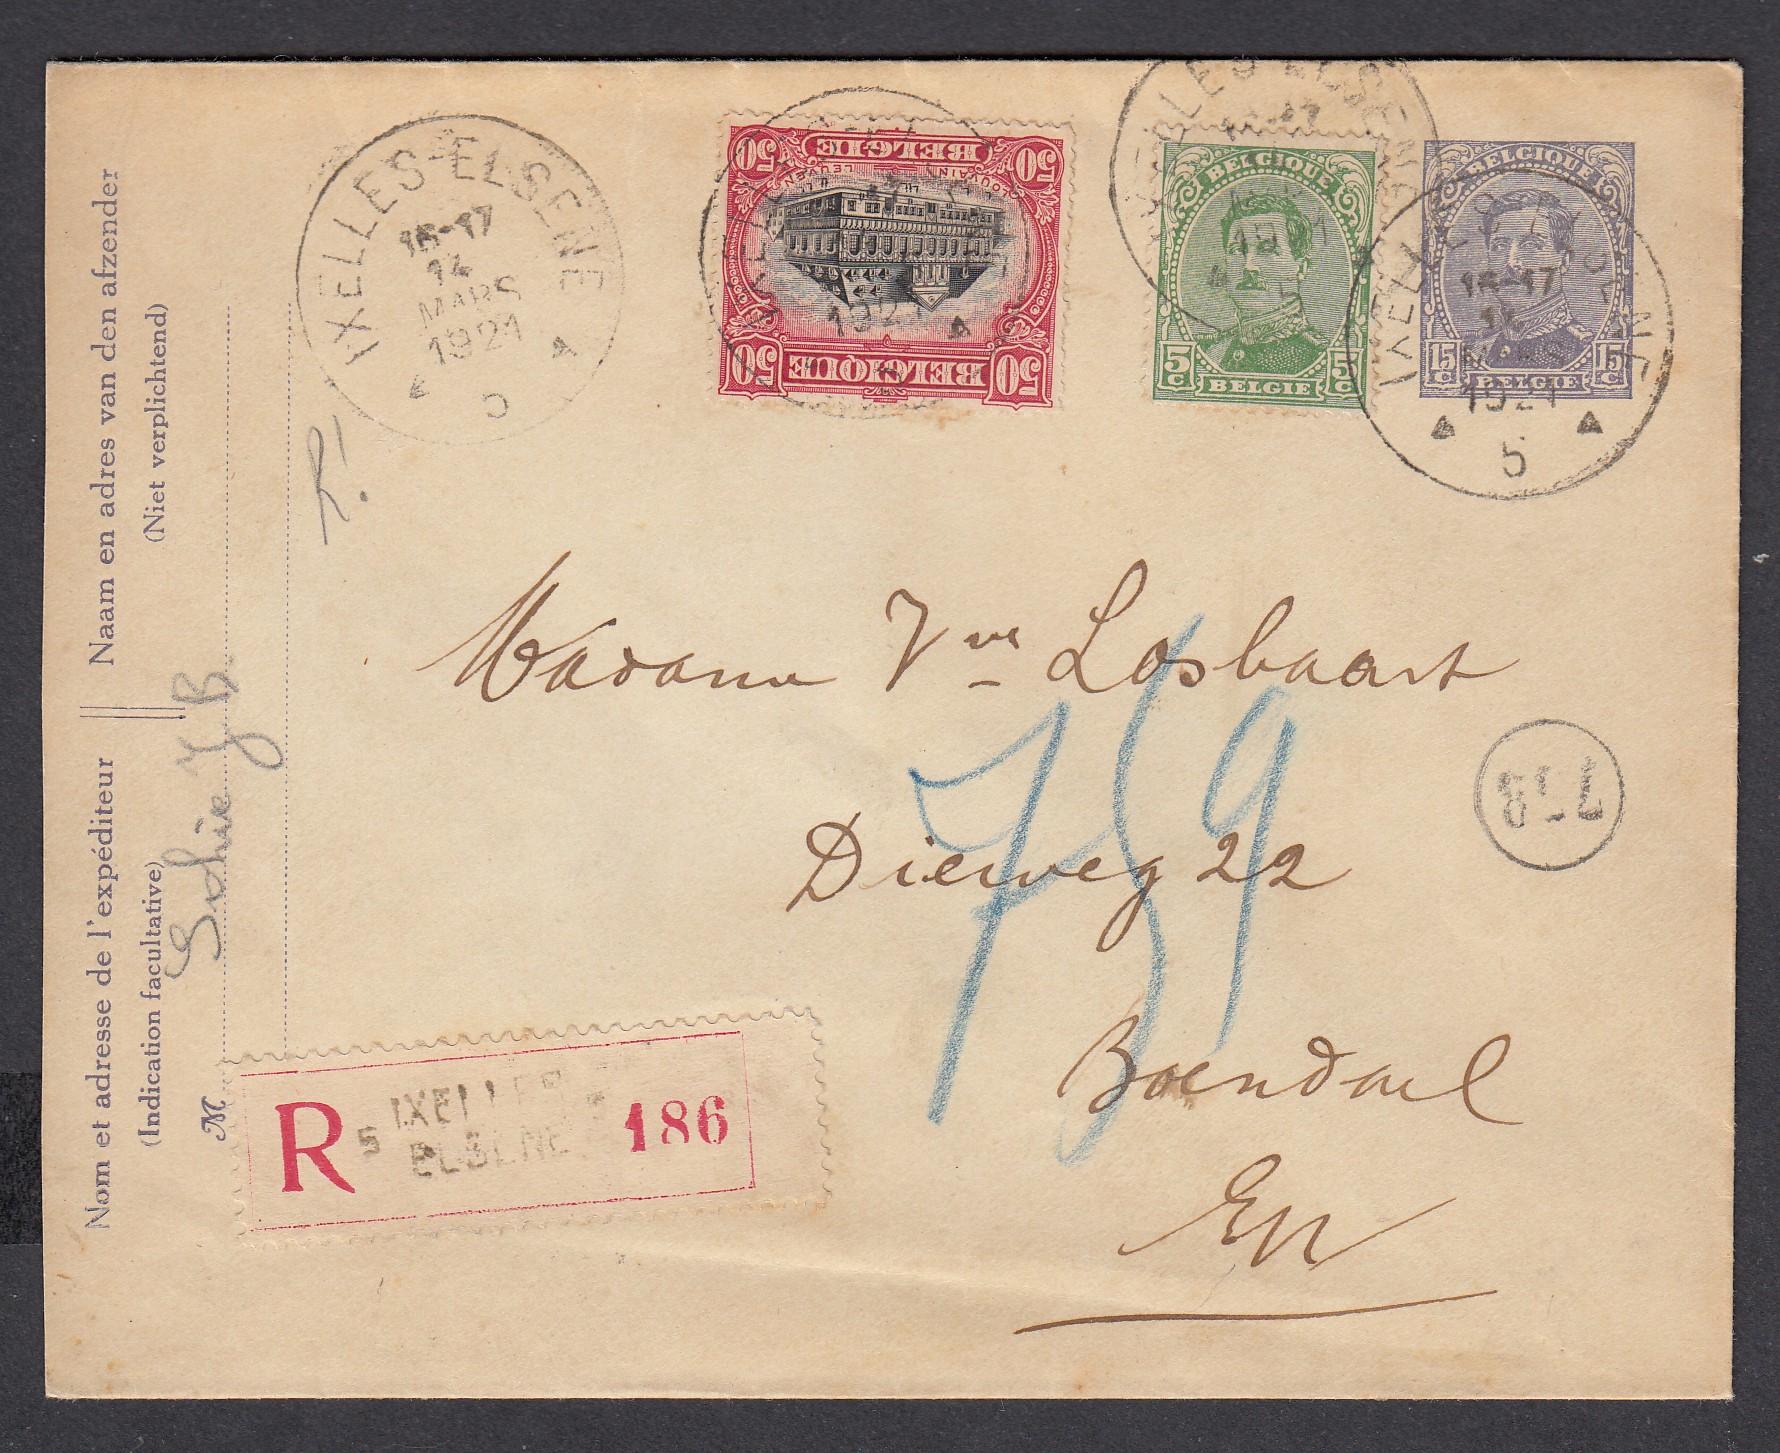 Naam en adres van den afzender
(Niet verplichtend)
Nom et adresse de l'expéditeur
(Indication facultative)
M
IXELLES-ELSENE
16-17
14
MARS
1921
5
50 BELGIE 50
LOUVAIN
LEUVEN
50 BELGIQUE 50
1921
BELGIQUE
5c BELGIE 5c
BELGIQUE
15c BELGIE 15c
16-17
14
1921
5
R!
Madame Vve Losbaart
Dieweg 22
Boendael
EV
759
R 5 IXELLES
ELSENE 186